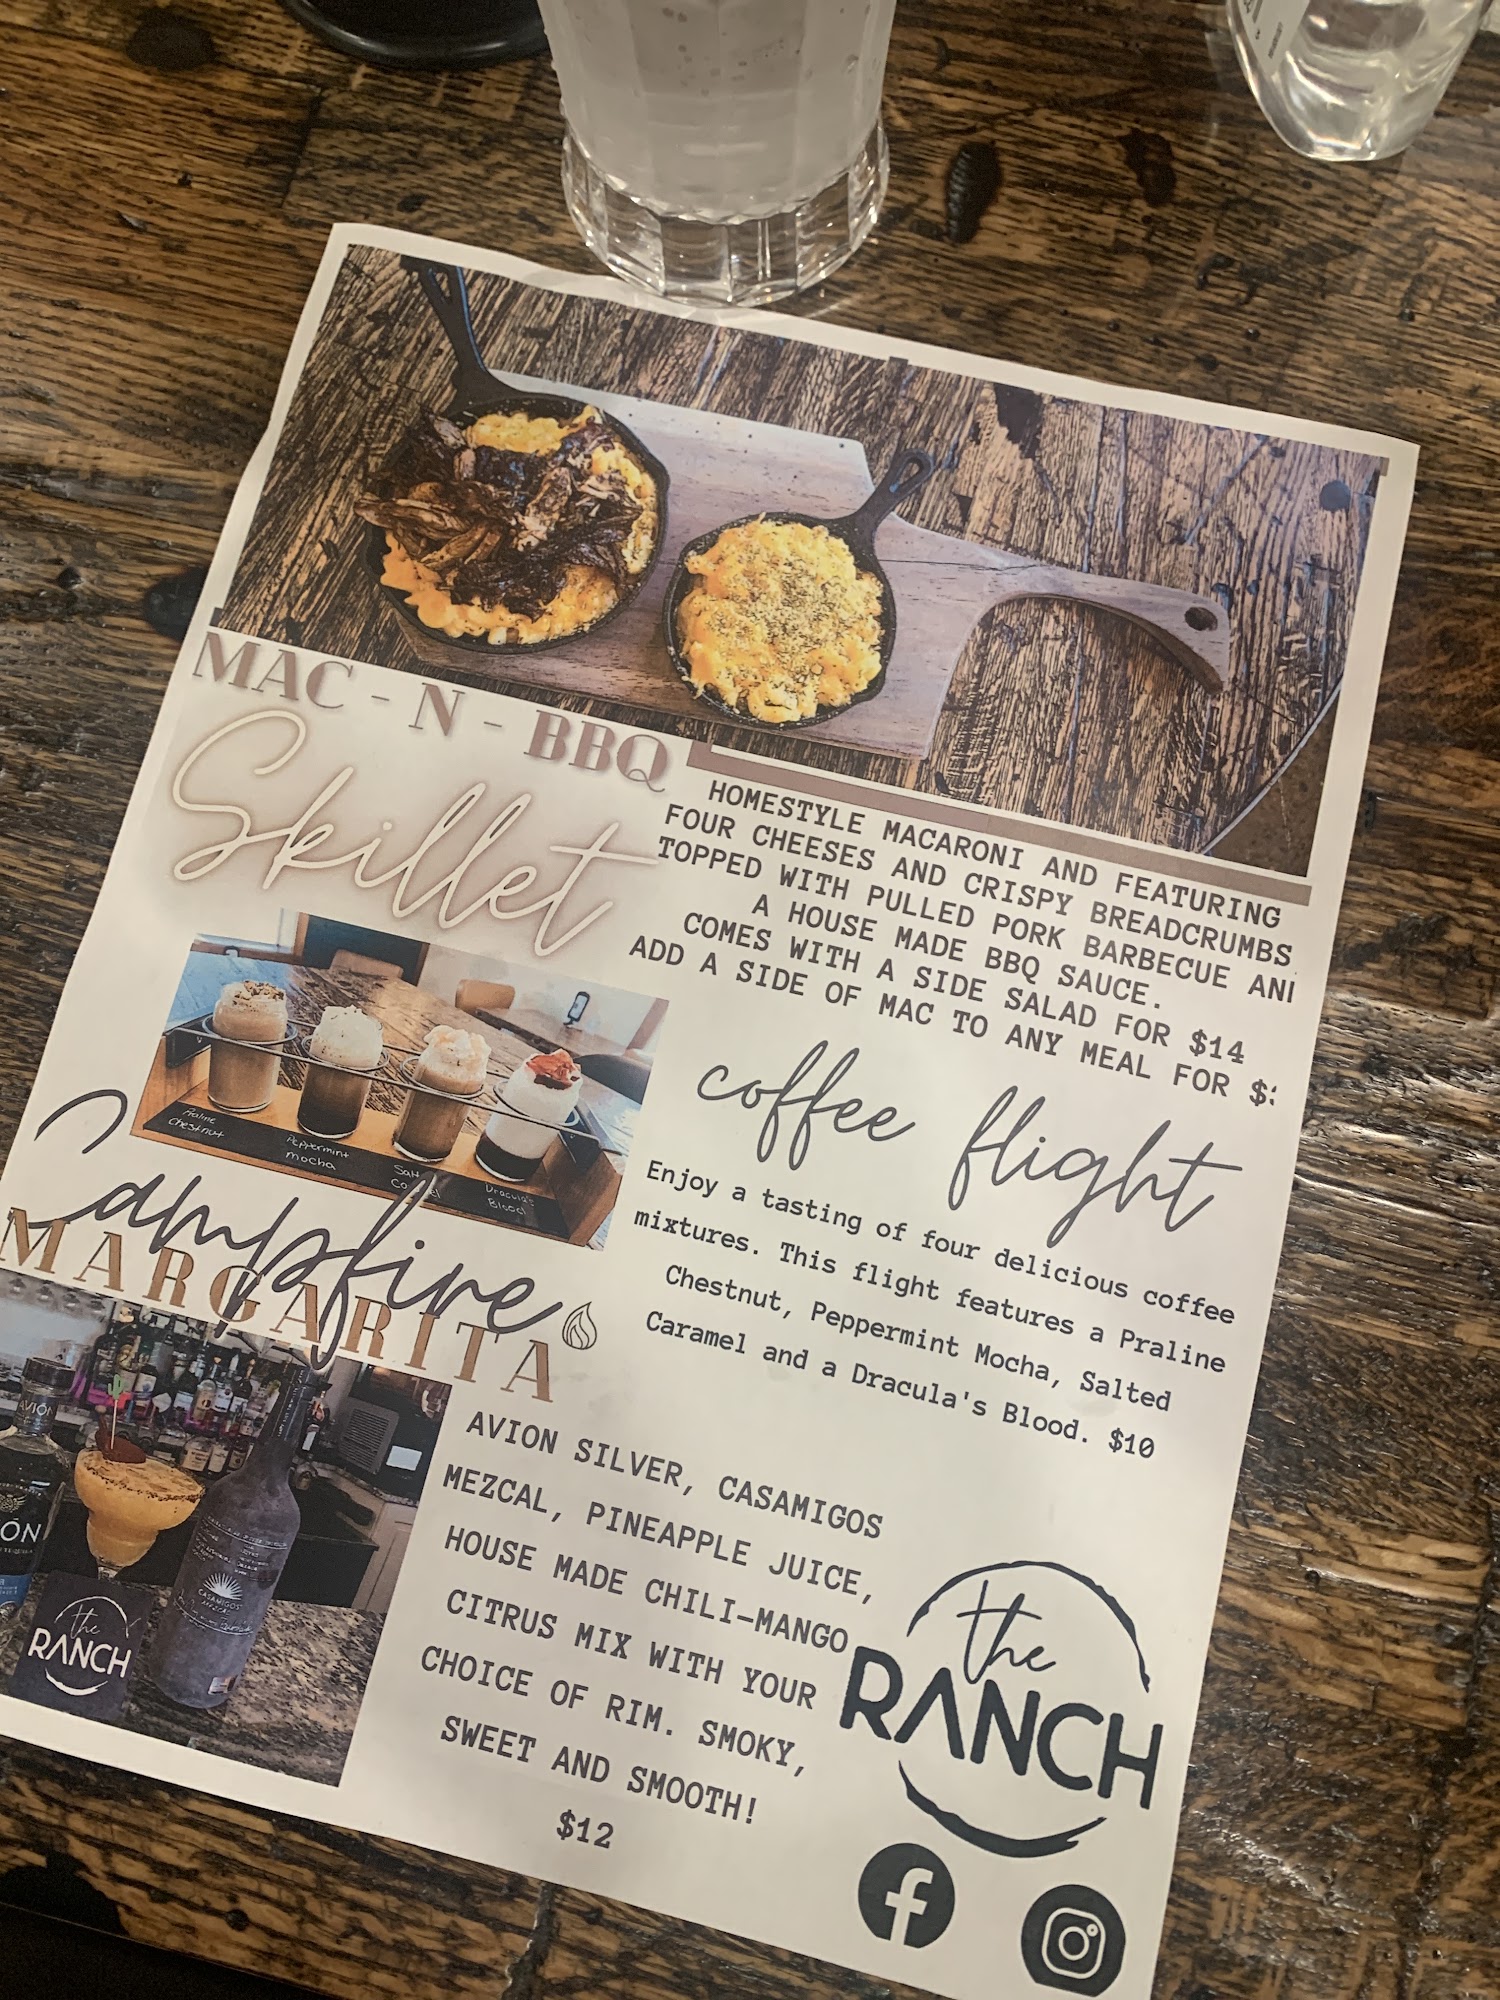 MAC - N - BBQ
Skillet
HOMESTYLE MACARONI AND FEATURING
FOUR CHEESES AND CRISPY BREADCRUMBS
TOPPED WITH PULLED PORK BARBECUE AN
A HOUSE MADE BBQ SAUCE.
COMES WITH A SIDE SALAD FOR $14
ADD A SIDE OF MAC TO ANY MEAL FOR $
Praline
chestnut
Peppermint
mocha
Salt
Dracula's
Blood
coffee flight
Enjoy a tasting of four delicious coffee
mixtures. This flight features a Praline
Chestnut, Peppermint Mocha, Salted
Caramel and a Dracula's Blood. $10
Campfire
MARGARITA
AVION SILVER, CASAMIGOS
MEZCAL, PINEAPPLE JUICE,
HOUSE MADE CHILI-MANGO
CITRUS MIX WITH YOUR
CHOICE OF RIM. SMOKY,
SWEET AND SMOOTH!
$12
AVIÓN
ÓN
CASAMIGOS
MEZCAL
the
RANCH
the
RANCH